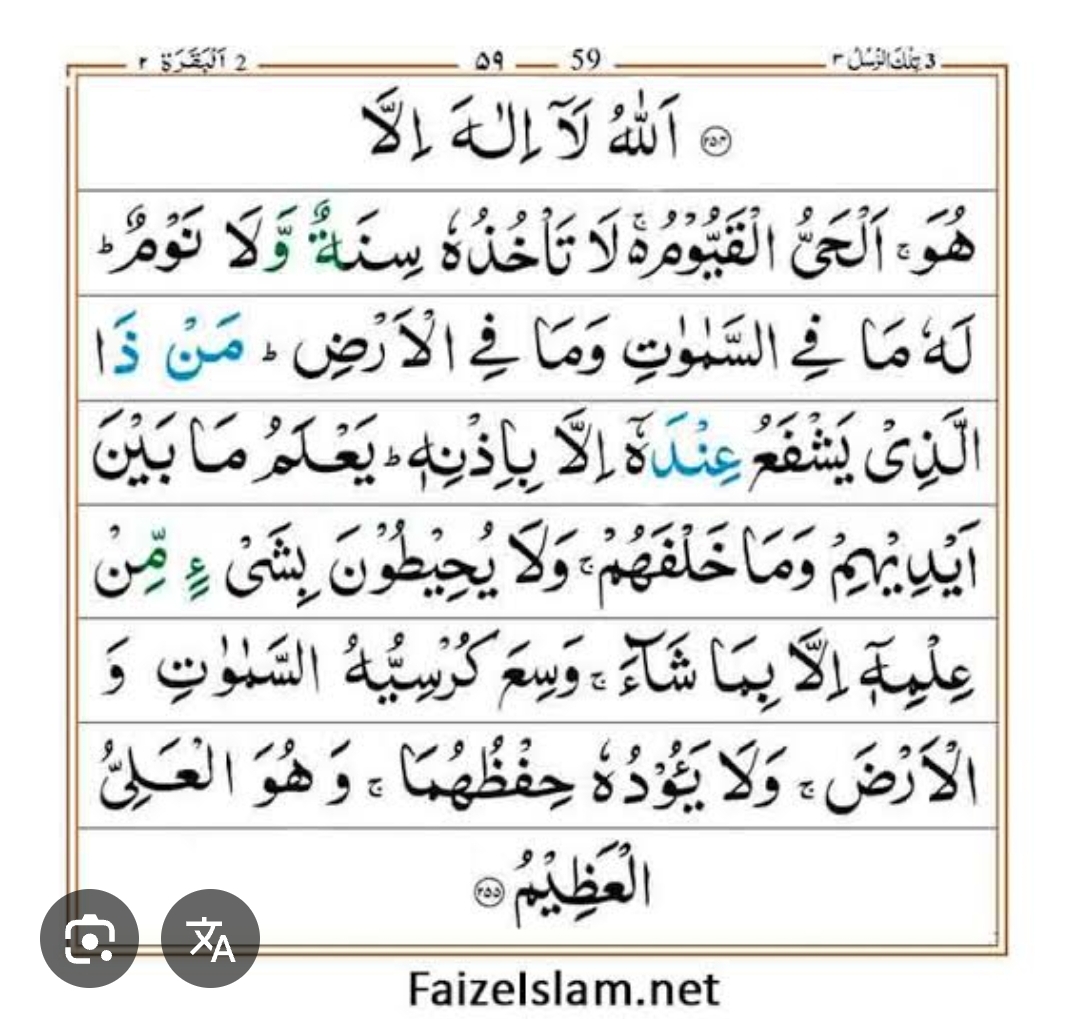 3 تِلْكَ الرُّسُلُ ٣ 59 ٥٩ 2 اَلْبَقَرَة ٢
۝٢٥٤ اَللّٰهُ لَاۤ اِلٰهَ اِلَّا
هُوَ ۚ اَلْحَیُّ الْقَیُّوْمُ ۬ۚ لَا تَاْخُذُهٗ سِنَةٌ وَّلَا نَوْمٌ ؕ
لَهٗ مَا فِی السَّمٰوٰتِ وَمَا فِی الْاَرْضِ ؕ مَنْ ذَا
الَّذِیْ یَشْفَعُ عِنْدَهٗۤ اِلَّا بِاِذْنِهٖ ؕ یَعْلَمُ مَا بَیْنَ
اَیْدِیْهِمْ وَمَا خَلْفَهُمْ ۚ وَلَا یُحِیْطُوْنَ بِشَیْءٍ مِّنْ
عِلْمِهٖۤ اِلَّا بِمَا شَآءَ ۚ وَسِعَ كُرْسِیُّهُ السَّمٰوٰتِ وَ
الْاَرْضَ ۚ وَلَا یَـُٔوْدُهٗ حِفْظُهُمَا ۚ وَ هُوَ الْعَلِیُّ
الْعَظِیْمُ ۝٢٥٥
FaizeIslam.net